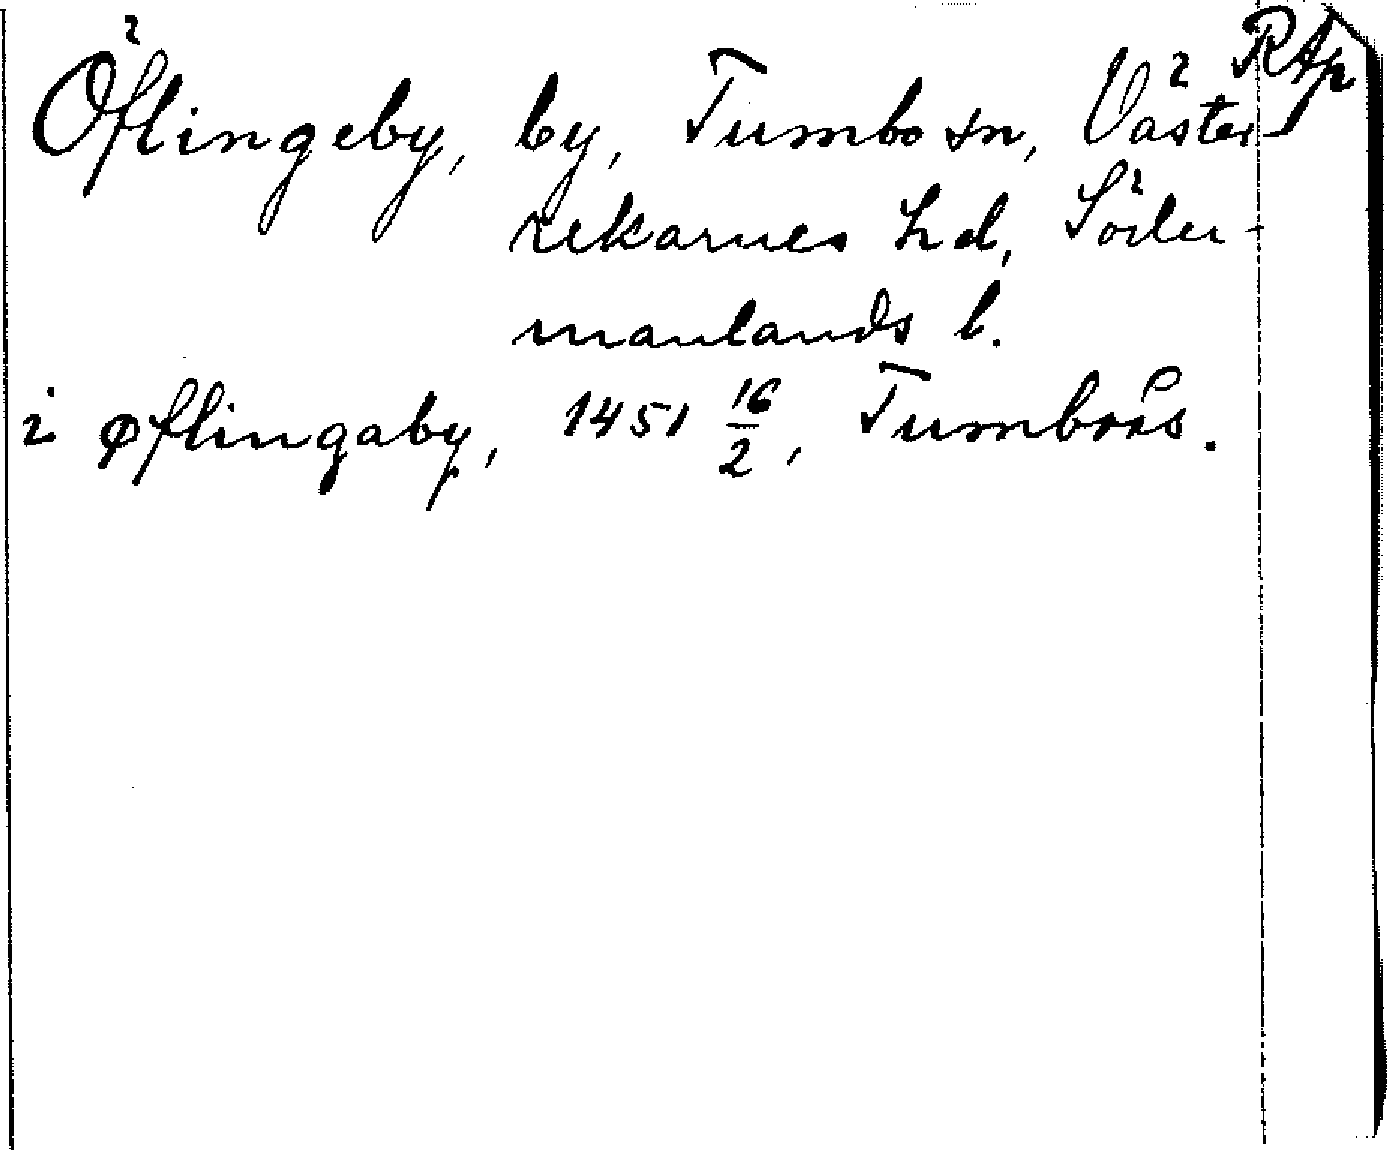 RAp
Öflingeby, by, Tumbo sn, Väster-
rekarnes hd, Söder-
manlands l.
i øflingaby, 1451 16/2, Tumboås.